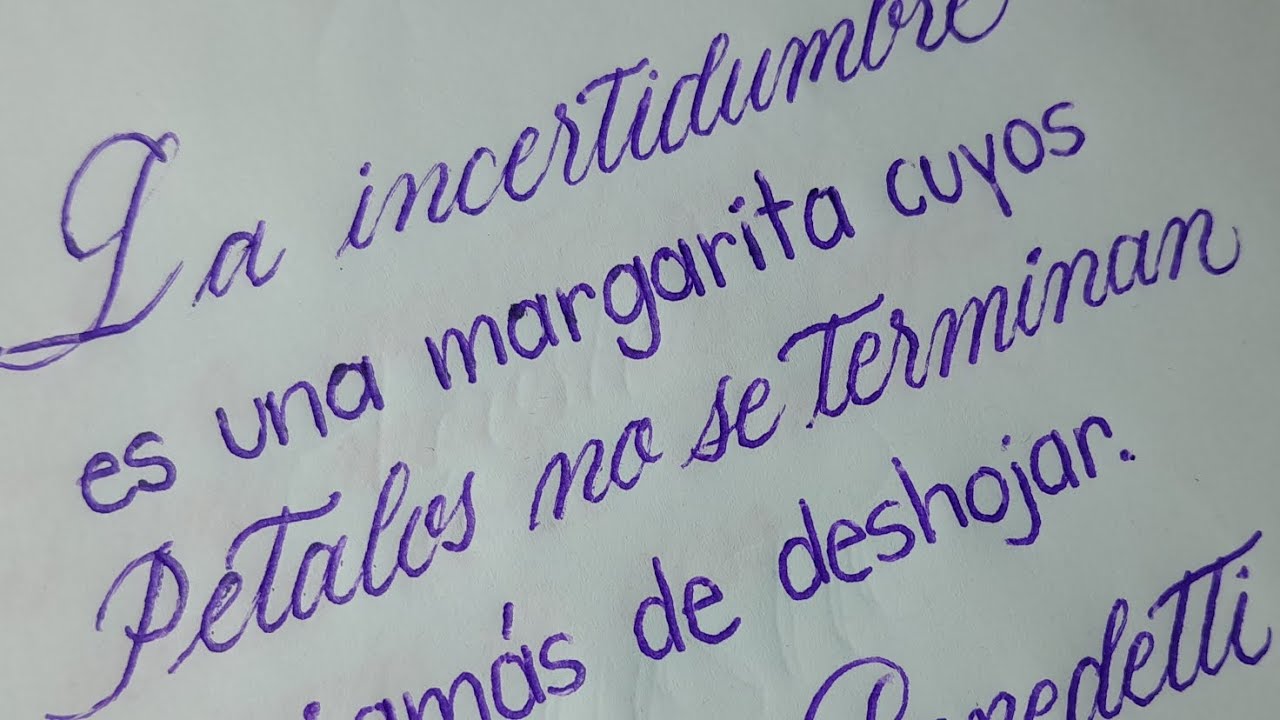 La incertidumbre
es una margarita cuyos
Petalos no se terminan
jamás de deshojar.
Benedetti